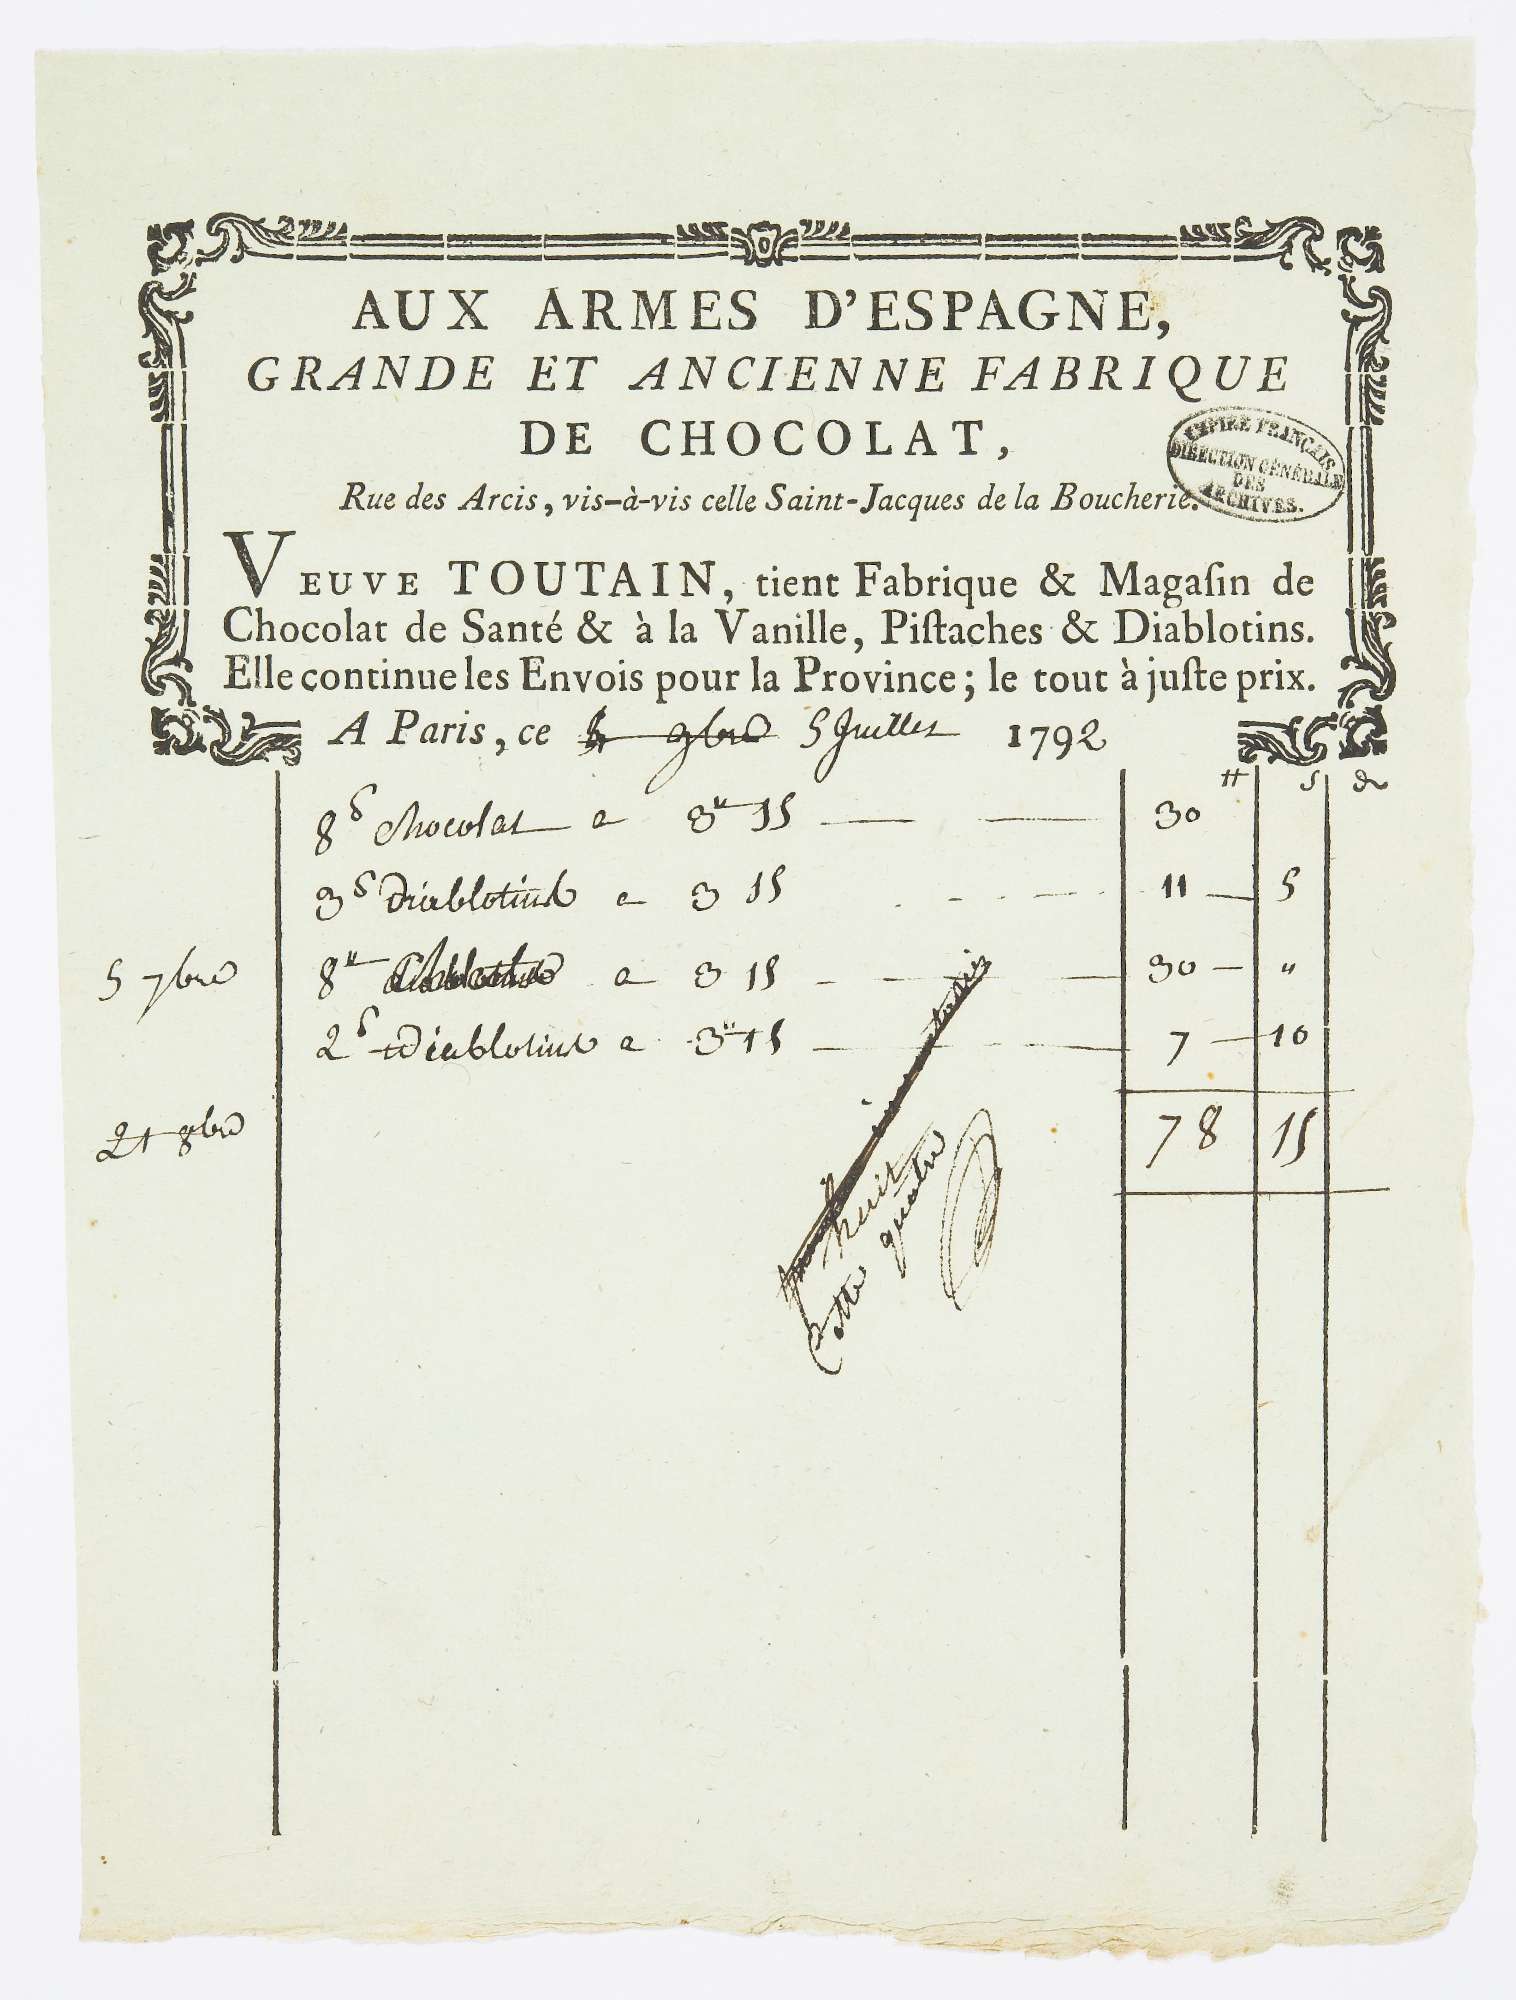 AUX ARMES D'ESPAGNE,
GRANDE ET ANCIENNE FABRIQUE
DE CHOCOLAT,
EMPIRE FRANÇAIS
DIRECTION GÉNÉRALE
DES
ARCHIVES.
Rue des Arcis, vis-à-vis celle Saint-Jacques de la Boucherie.
VEUVE TOUTAIN, tient Fabrique & Magaſin de
Chocolat de Santé & à la Vanille, Piſtaches & Diablotins.
Elle continue les Envois pour la Province; le tout à juſte prix.
A Paris, ce 9bre 5 Juillet 1792
₶ s d
8 chocolat a 3 15 30
3 Diablotins a 3 15 11 5
5 7bre 8 a 3 15 30 "
2 Diablotins a 3 15 7 10
21 8bre 78 15
huit
Cotte quatre